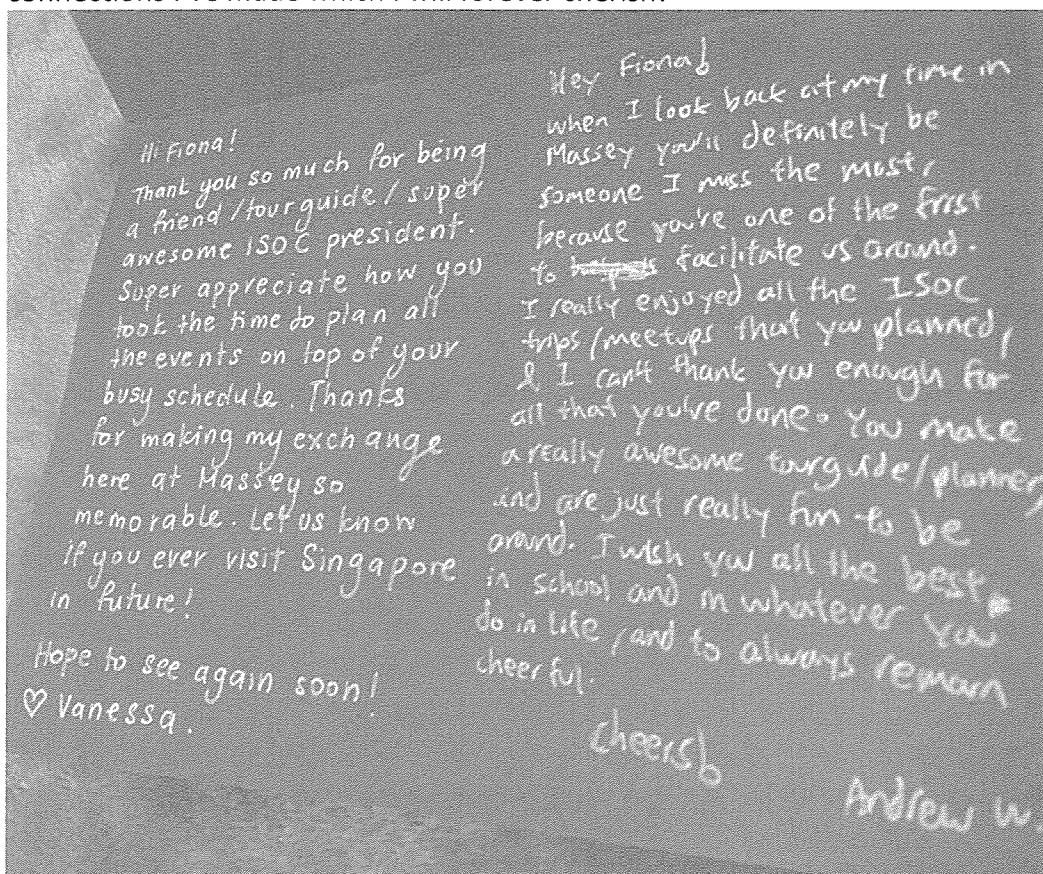 connections I've made which I will forever cherish.
Hi Fiona!
Thank you so much for being
a friend/tourguide/super
awesome ISOC president.
Super appreciate how you
took the time to plan all
the events on top of your
busy schedule. Thanks
for making my exchange
here at Massey so
memorable. Let us know
if you ever visit Singapore
in future!
Hope to see again soon!
♡ Vanessa.
Hey Fiona!
when I look back at my time in
Massey you'll definitely be
someone I miss the most,
because you're one of the first
to facilitate us around.
I really enjoyed all the ISOC
trips/meetups that you planned,
& I can't thank you enough for
all that you've done. You make
a really awesome tourguide/planner,
and are just really fun to be
around. I wish you all the best
in school and in whatever you
do in life, and to always remain
cheerful.
Cheers!
Andrew W.